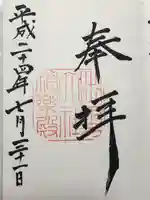 奉拝
平成二十四年七月三十一日